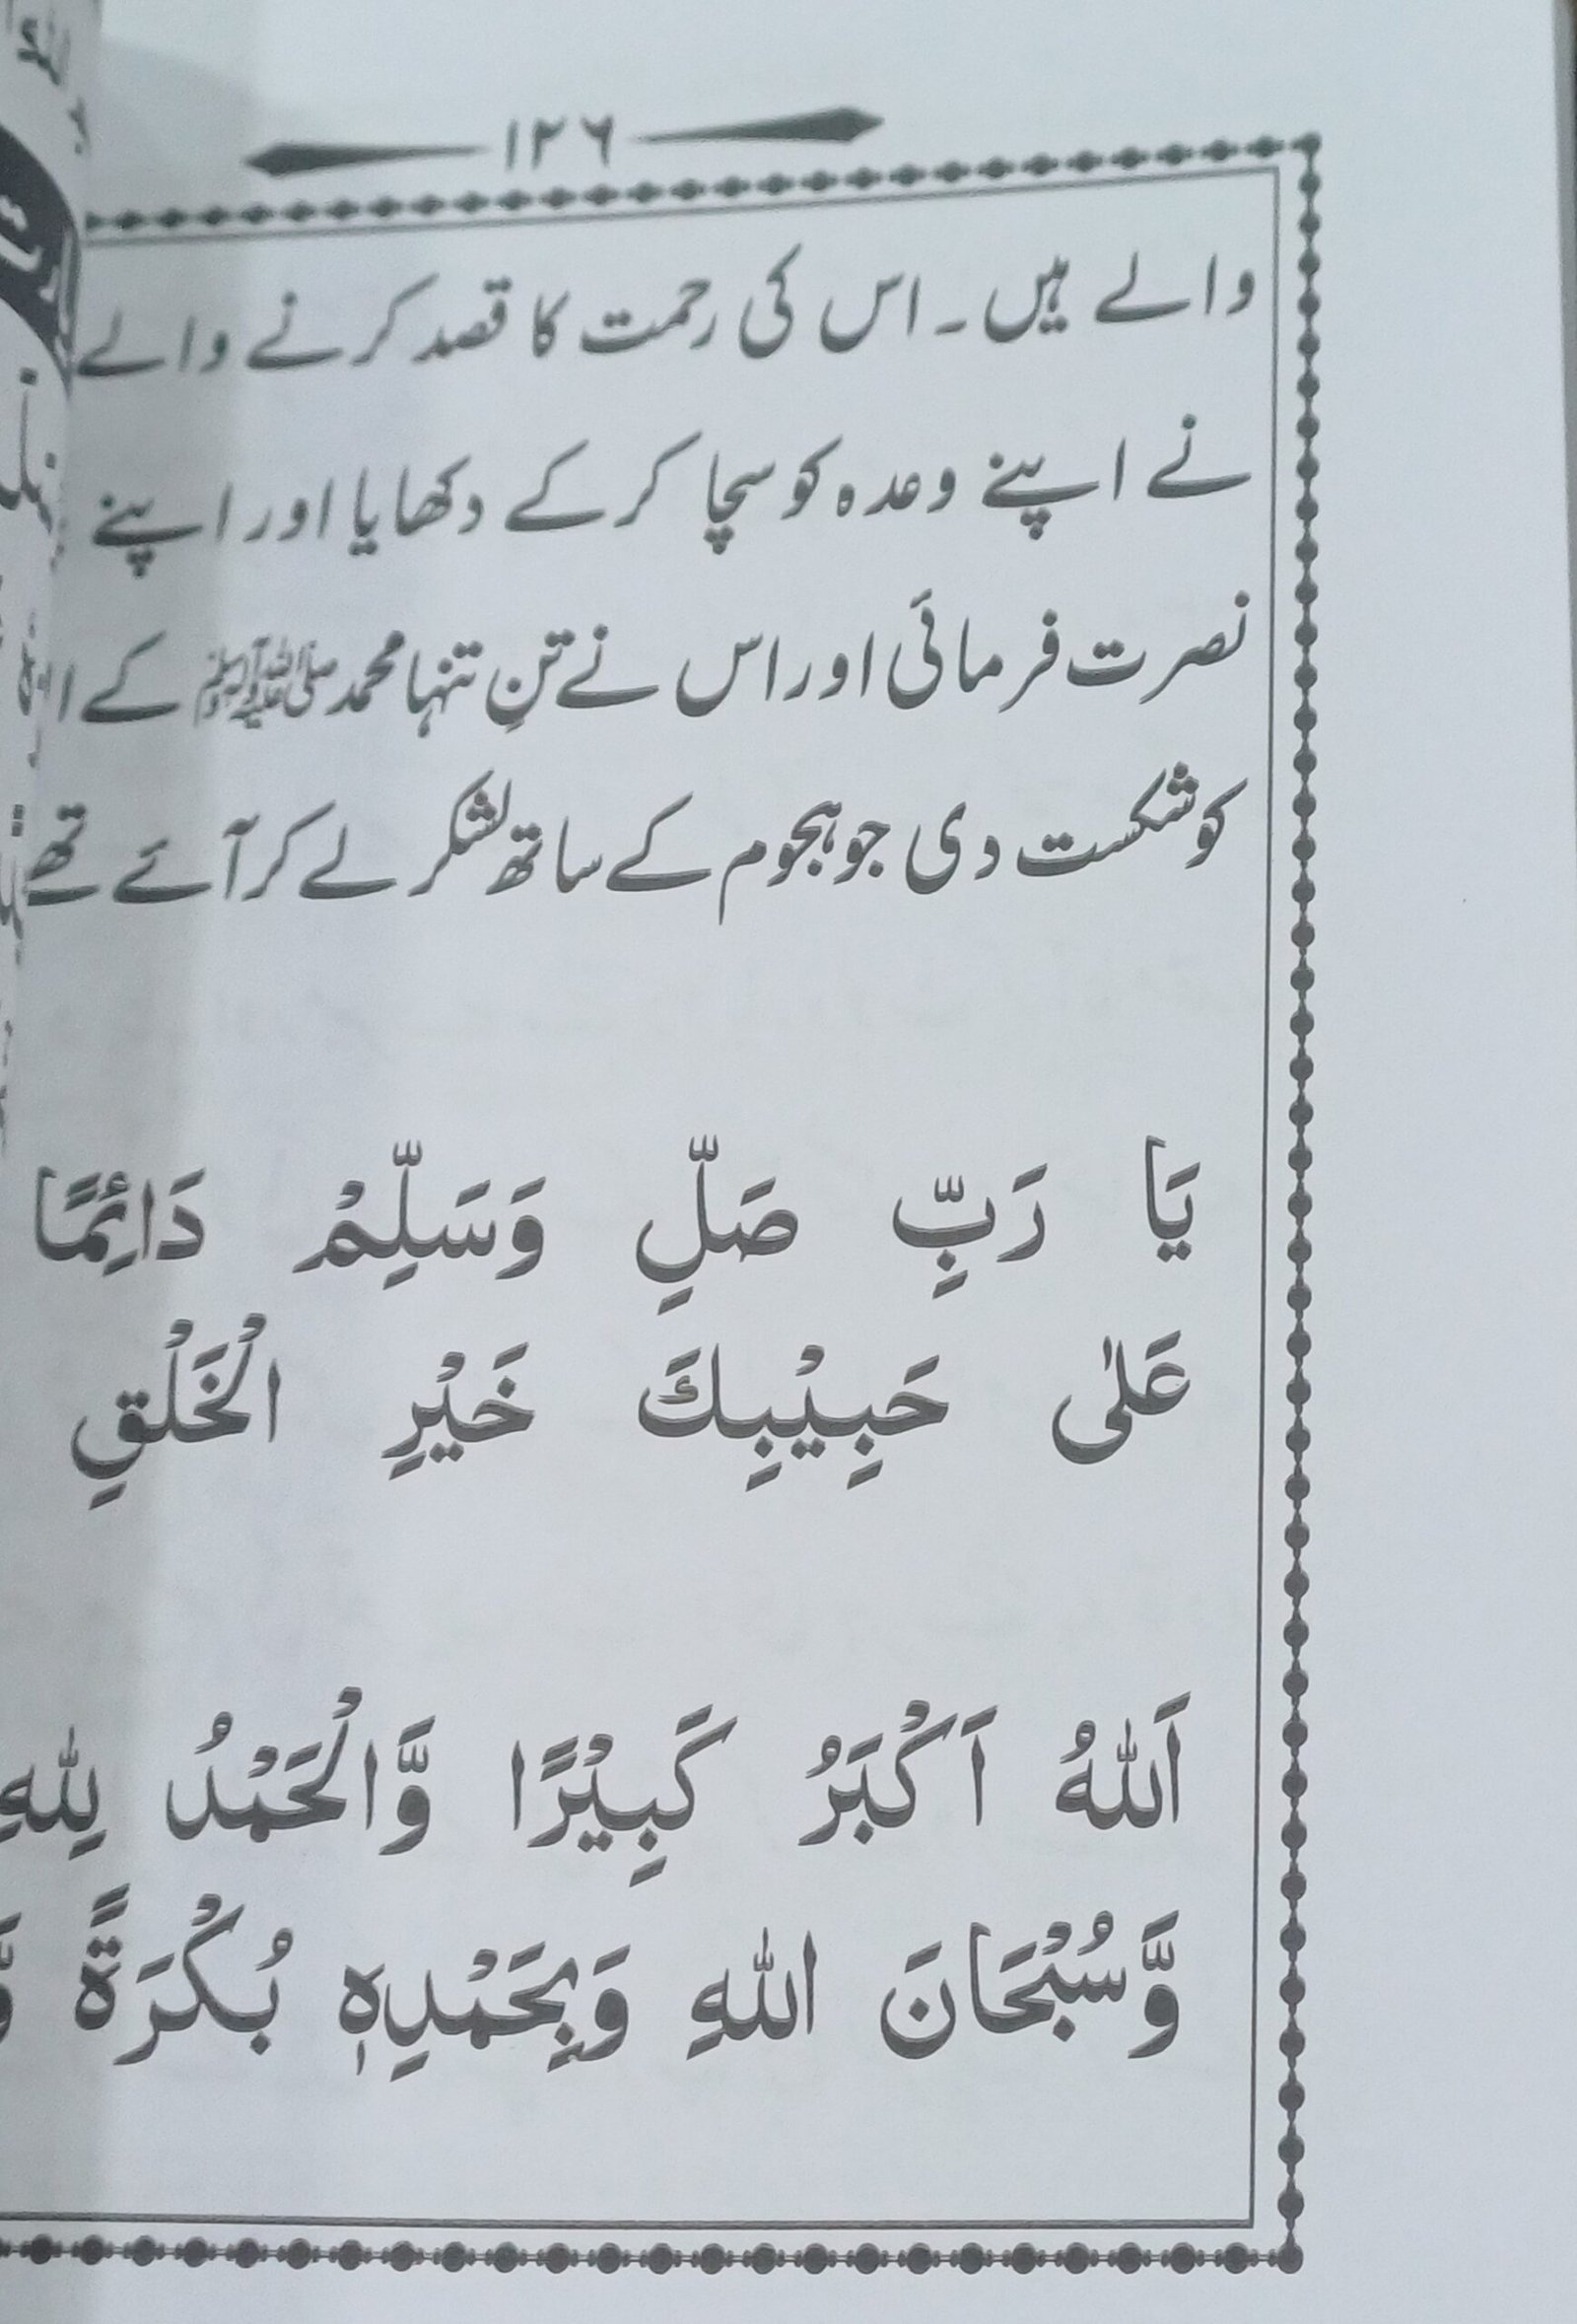 ۱۲۶
والے ہیں۔ اس کی رحمت کا قصد کرنے والے
نے اپنے وعدہ کو سچا کر کے دکھایا اور اپنے
نصرت فرمائی اور اس نے تنِ تنہا محمد ﷺ کے
کو شکست دی جو ہجوم کے ساتھ لشکر لے کر آئے تھے
یَا رَبِّ صَلِّ وَسَلِّمْ دَائِمًا
عَلٰى حَبِيْبِكَ خَيْرِ الْخَلْقِ
اَللّٰهُ اَكْبَرُ كَبِيْرًا وَّالْحَمْدُ لِلّٰهِ
وَّسُبْحَانَ اللّٰهِ وَبِحَمْدِهٖ بُكْرَةً